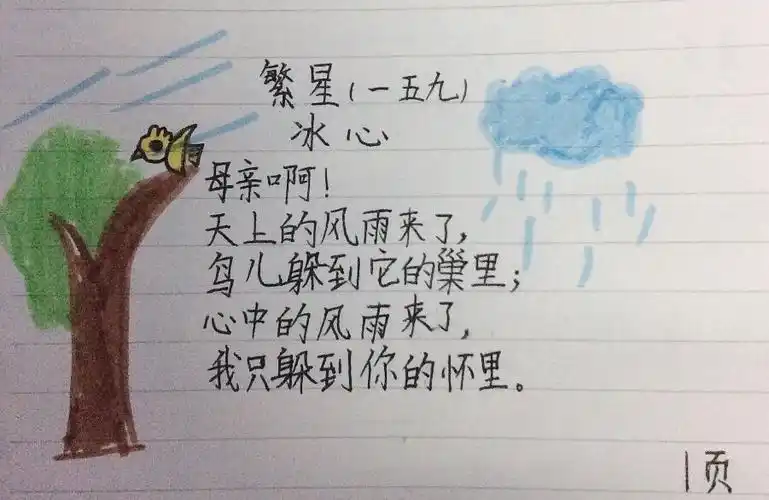 繁星(一五九)
冰心
母亲啊!
天上的风雨来了,
鸟儿躲到它的巢里;
心中的风雨来了,
我只躲到你的怀里。
1页